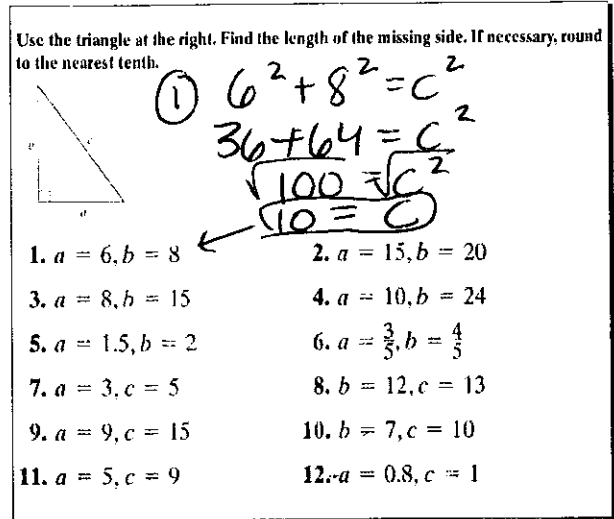 Use the triangle at the right. Find the length of the missing side. If necessary, round
to the nearest tenth.
① 6² + 8² = c²
36 + 64 = c²
√100 = √c²
10 = c
c
a
1. a = 6, b = 8
2. a = 15, b = 20
3. a = 8, b = 15
4. a = 10, b = 24
5. a = 1.5, b = 2
6. a = 3/5, b = 4/5
7. a = 3, c = 5
8. b = 12, c = 13
9. a = 9, c = 15
10. b = 7, c = 10
11. a = 5, c = 9
12. a = 0.8, c = 1